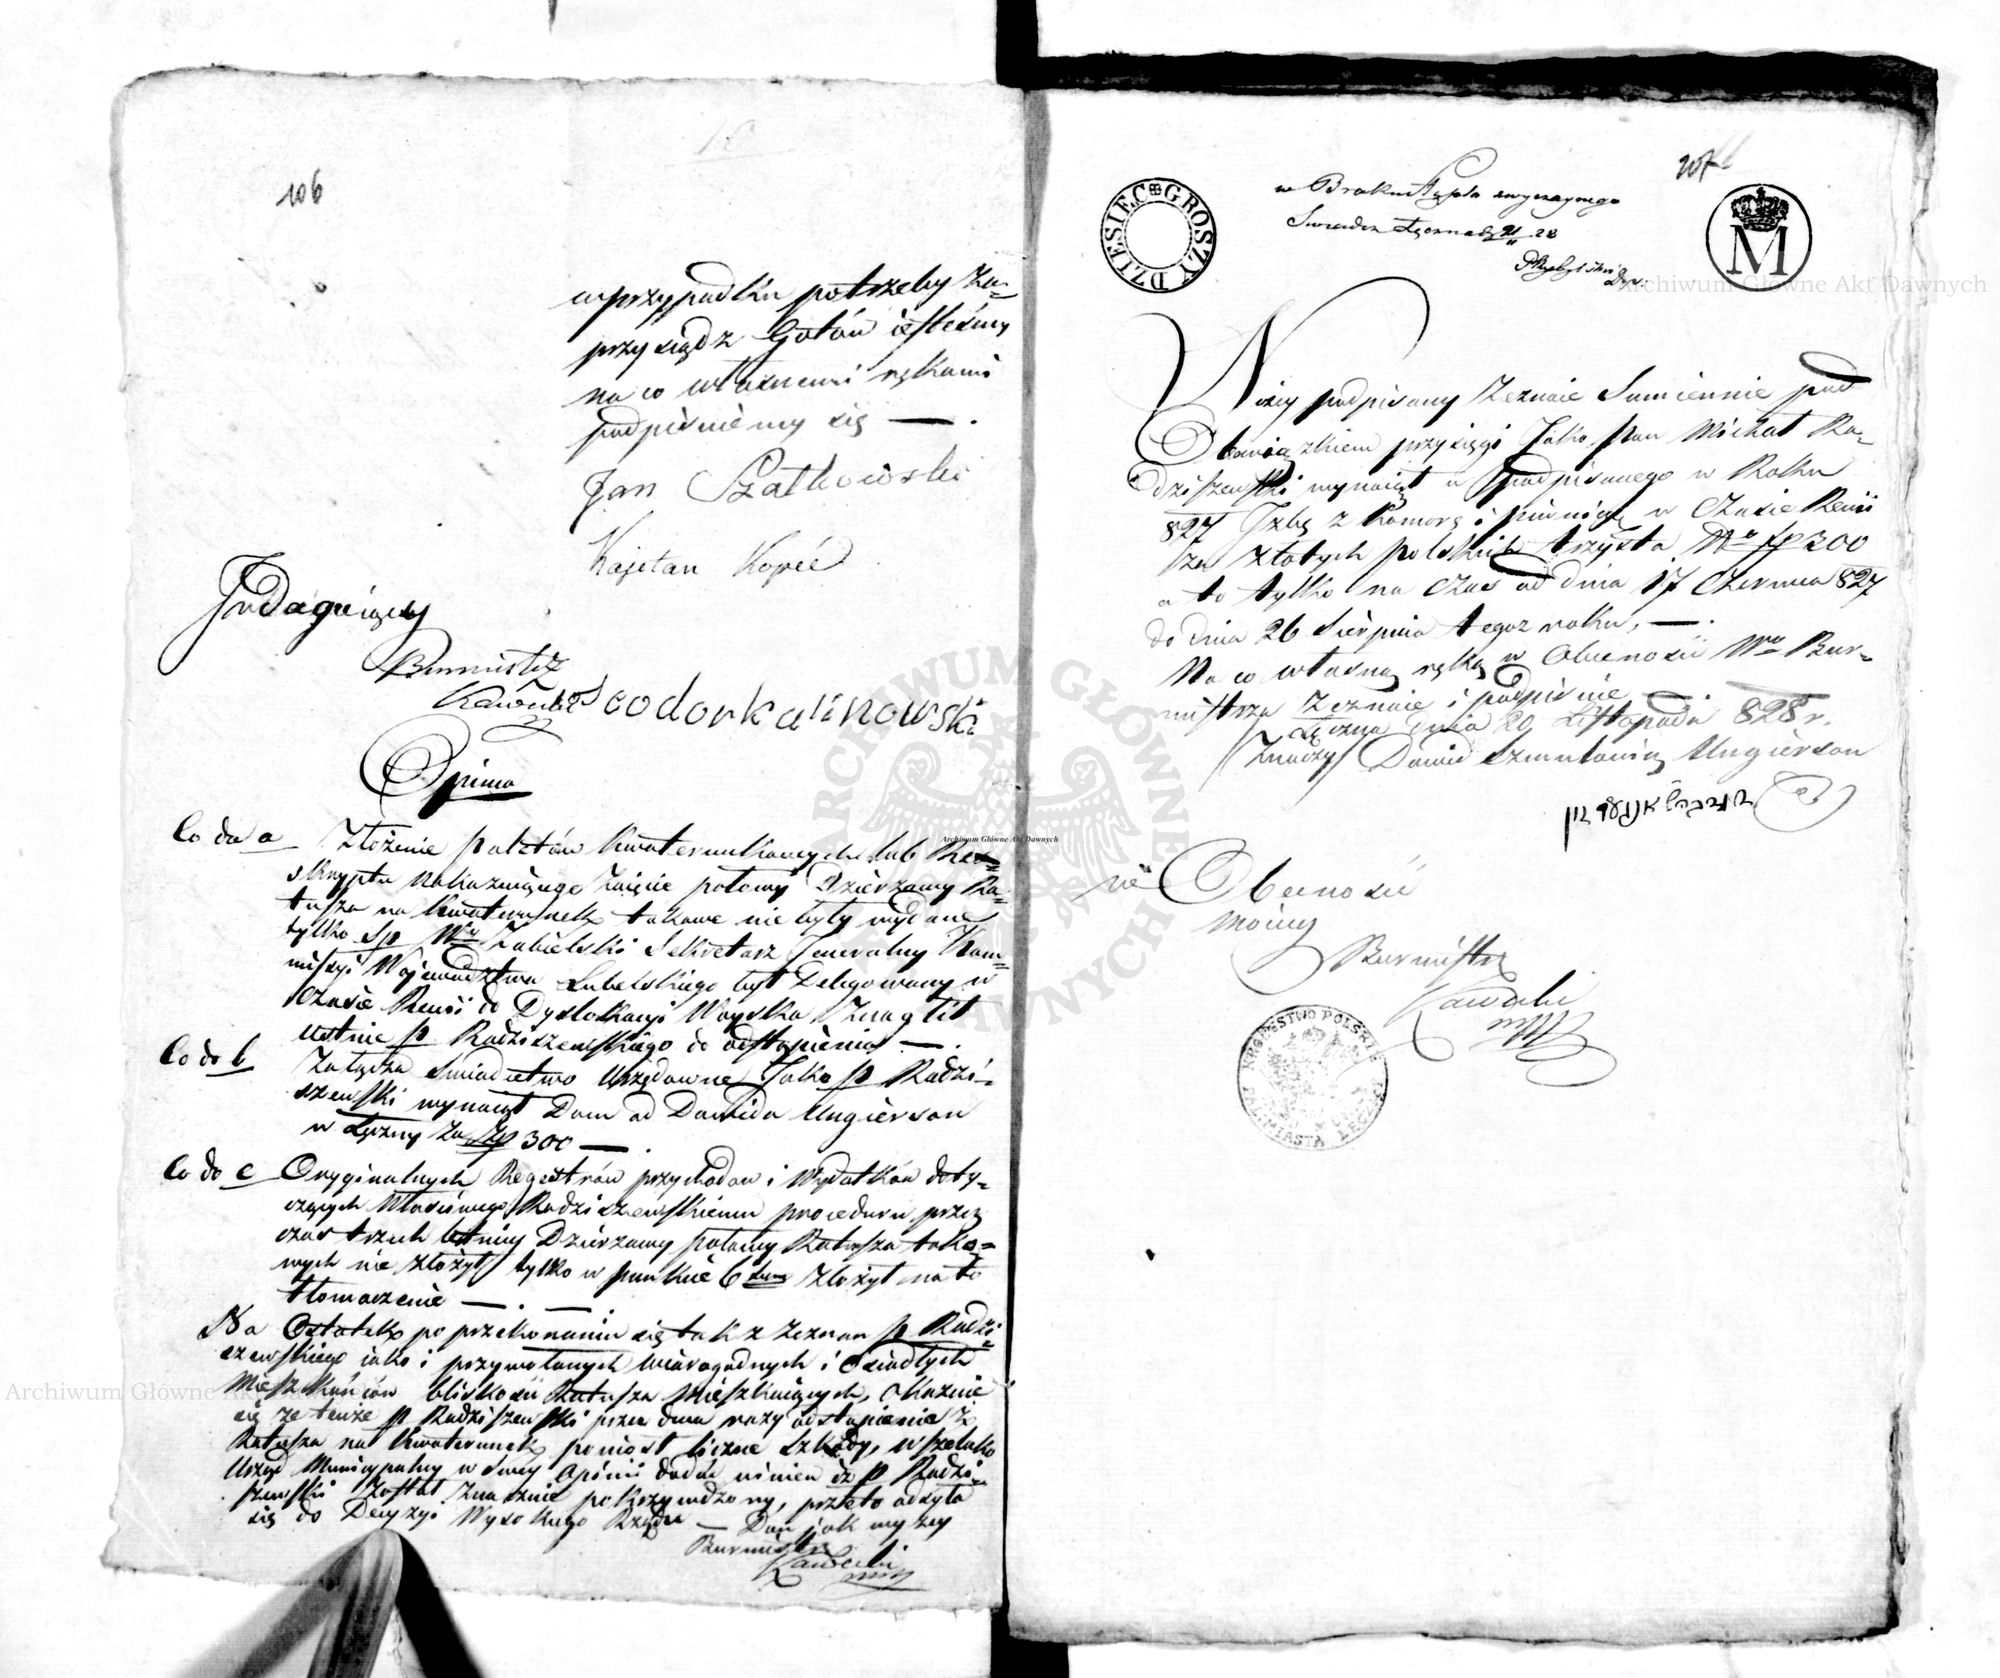 106
w przypadku potrzeby za-
przysiądz Gotów iesteśmy
na co własnemi rękami
podpisuiemy się — .
Jan Szatkowski
Kajetan Kopeć
Indaguiący
Burmistrz
Kawecki Teodor Kalinowski
Opinia
Co do a Złożenie palatów kwaterunkowych lub Re-
skryptu nakazuiącego zaięcie połowy Dzierzawy Ra-
tusza na kwaterunek takowe nie były wydane
tylko Sp Wny Zabielski Sekretarz Jeneralny Kom-
missyi Wojewodztwa Lubelskiego był Delegowany w
Czasie Rewii do Dyslokacyi Woyska znaglił
ustnie P. Radziszewskiego do odstąpienia — .
Co do b Załącza świadectwo Urzędowne Jako P Radzi-
szewski wynaiął Dom od Dawida Ungierson
w Łęczny za Zp 300 — .
Co do c Oryginalnych Regestrów przychodow i Wydatków doty-
czących Właściwego Radziszewskiemu procederu przez
czas trzech letniey Dzierzawy połowy Ratusza tako-
wych nie złożył tylko w punkcie 6 złożył na to
tłomaczenie — . — .
Na Ostatek po przekonaniu się tak z zeznan P Radzi-
szewskiego iako i przywołanych wiarogodnych i Osiadłych
Mieszkańców bliskości Ratusza Mieszkaiących, okazuie
się ze tenże P Radziszewski przez dwa razy odstąpienie z
Ratusza na kwaterunek poniosł liczne szkody, wszelako
Urząd Municypalny w swey Opinii dodać winien iż P Radzi-
szewski został znacznie pokrzywdzony, przeto odsyła
się do Decyzyi Wysokiego Rządu — Dan jak wyzey
Burmistrz
Kawecki
107
DZIESIĘC GROSZY
M
w Braku stępla zwyczaynego
Swiadczą Łęczna d 21/11 28
Niżey podpisany Zeznaie Sumiennie pod
Obowiązkiem przysięgi Jako Pan Michał Ra-
dziszewski wynaiął u Podpisanego w Roku
827 Izbę z Komorą i piwnicą w Czasie Rewii
za Złotych Polskich trzysta Nro Zp 300
a to tylko na czas od dnia 17 Czerwca 827
do dnia 26 Sierpnia tegoz roku, — .
Na co własną ręką w Obecności Wo Bur-
mistrza Zeznaie i podpisuie —
Łęczna dnia 20 Listopada 828 r.
Znaczy Dawid Szmulowicz Ungierson
w Obecności
moiey
Burmistrz
Kawecki
KROLESTWO POLSKIE
Archiwum Główne Akt Dawnych
Archiwum Główne Akt Dawnych
Archiwum Główne Akt Dawnych
ARCHIWUM GŁÓWNE AKT DAWNYCH